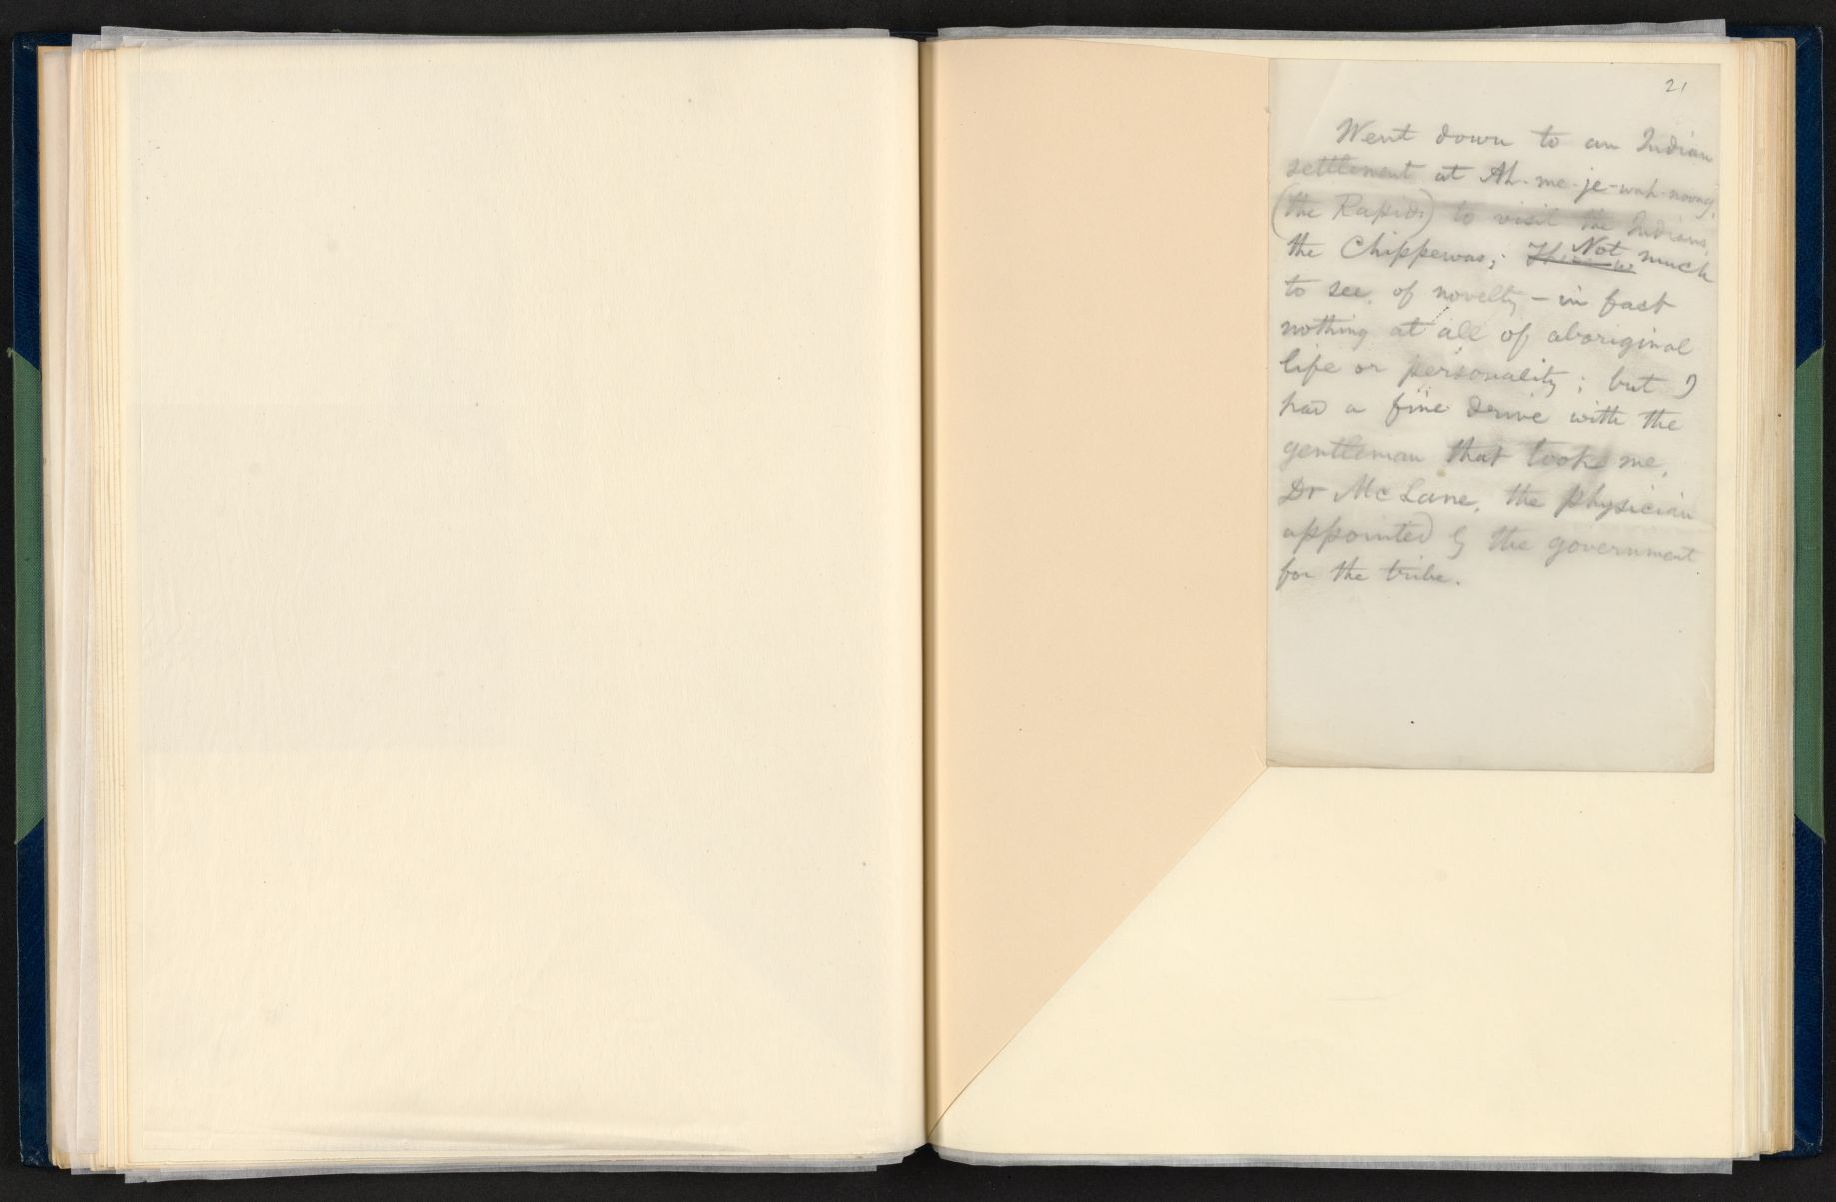 21
Went down to an Indian
settlement at Ah-me-je-wah-noong,
(the Rapids) to visit the Indians,
the Chippewas; Not much
to see, of novelty – in fact
nothing at all of aboriginal
life or personality; but I
had a fine drive with the
gentleman that took me,
Dr McLane, the physician
appointed by the government
for the tribe.